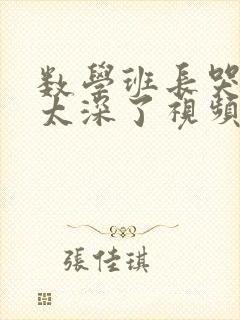 数學班長哭
太深了視頻
張佳琪